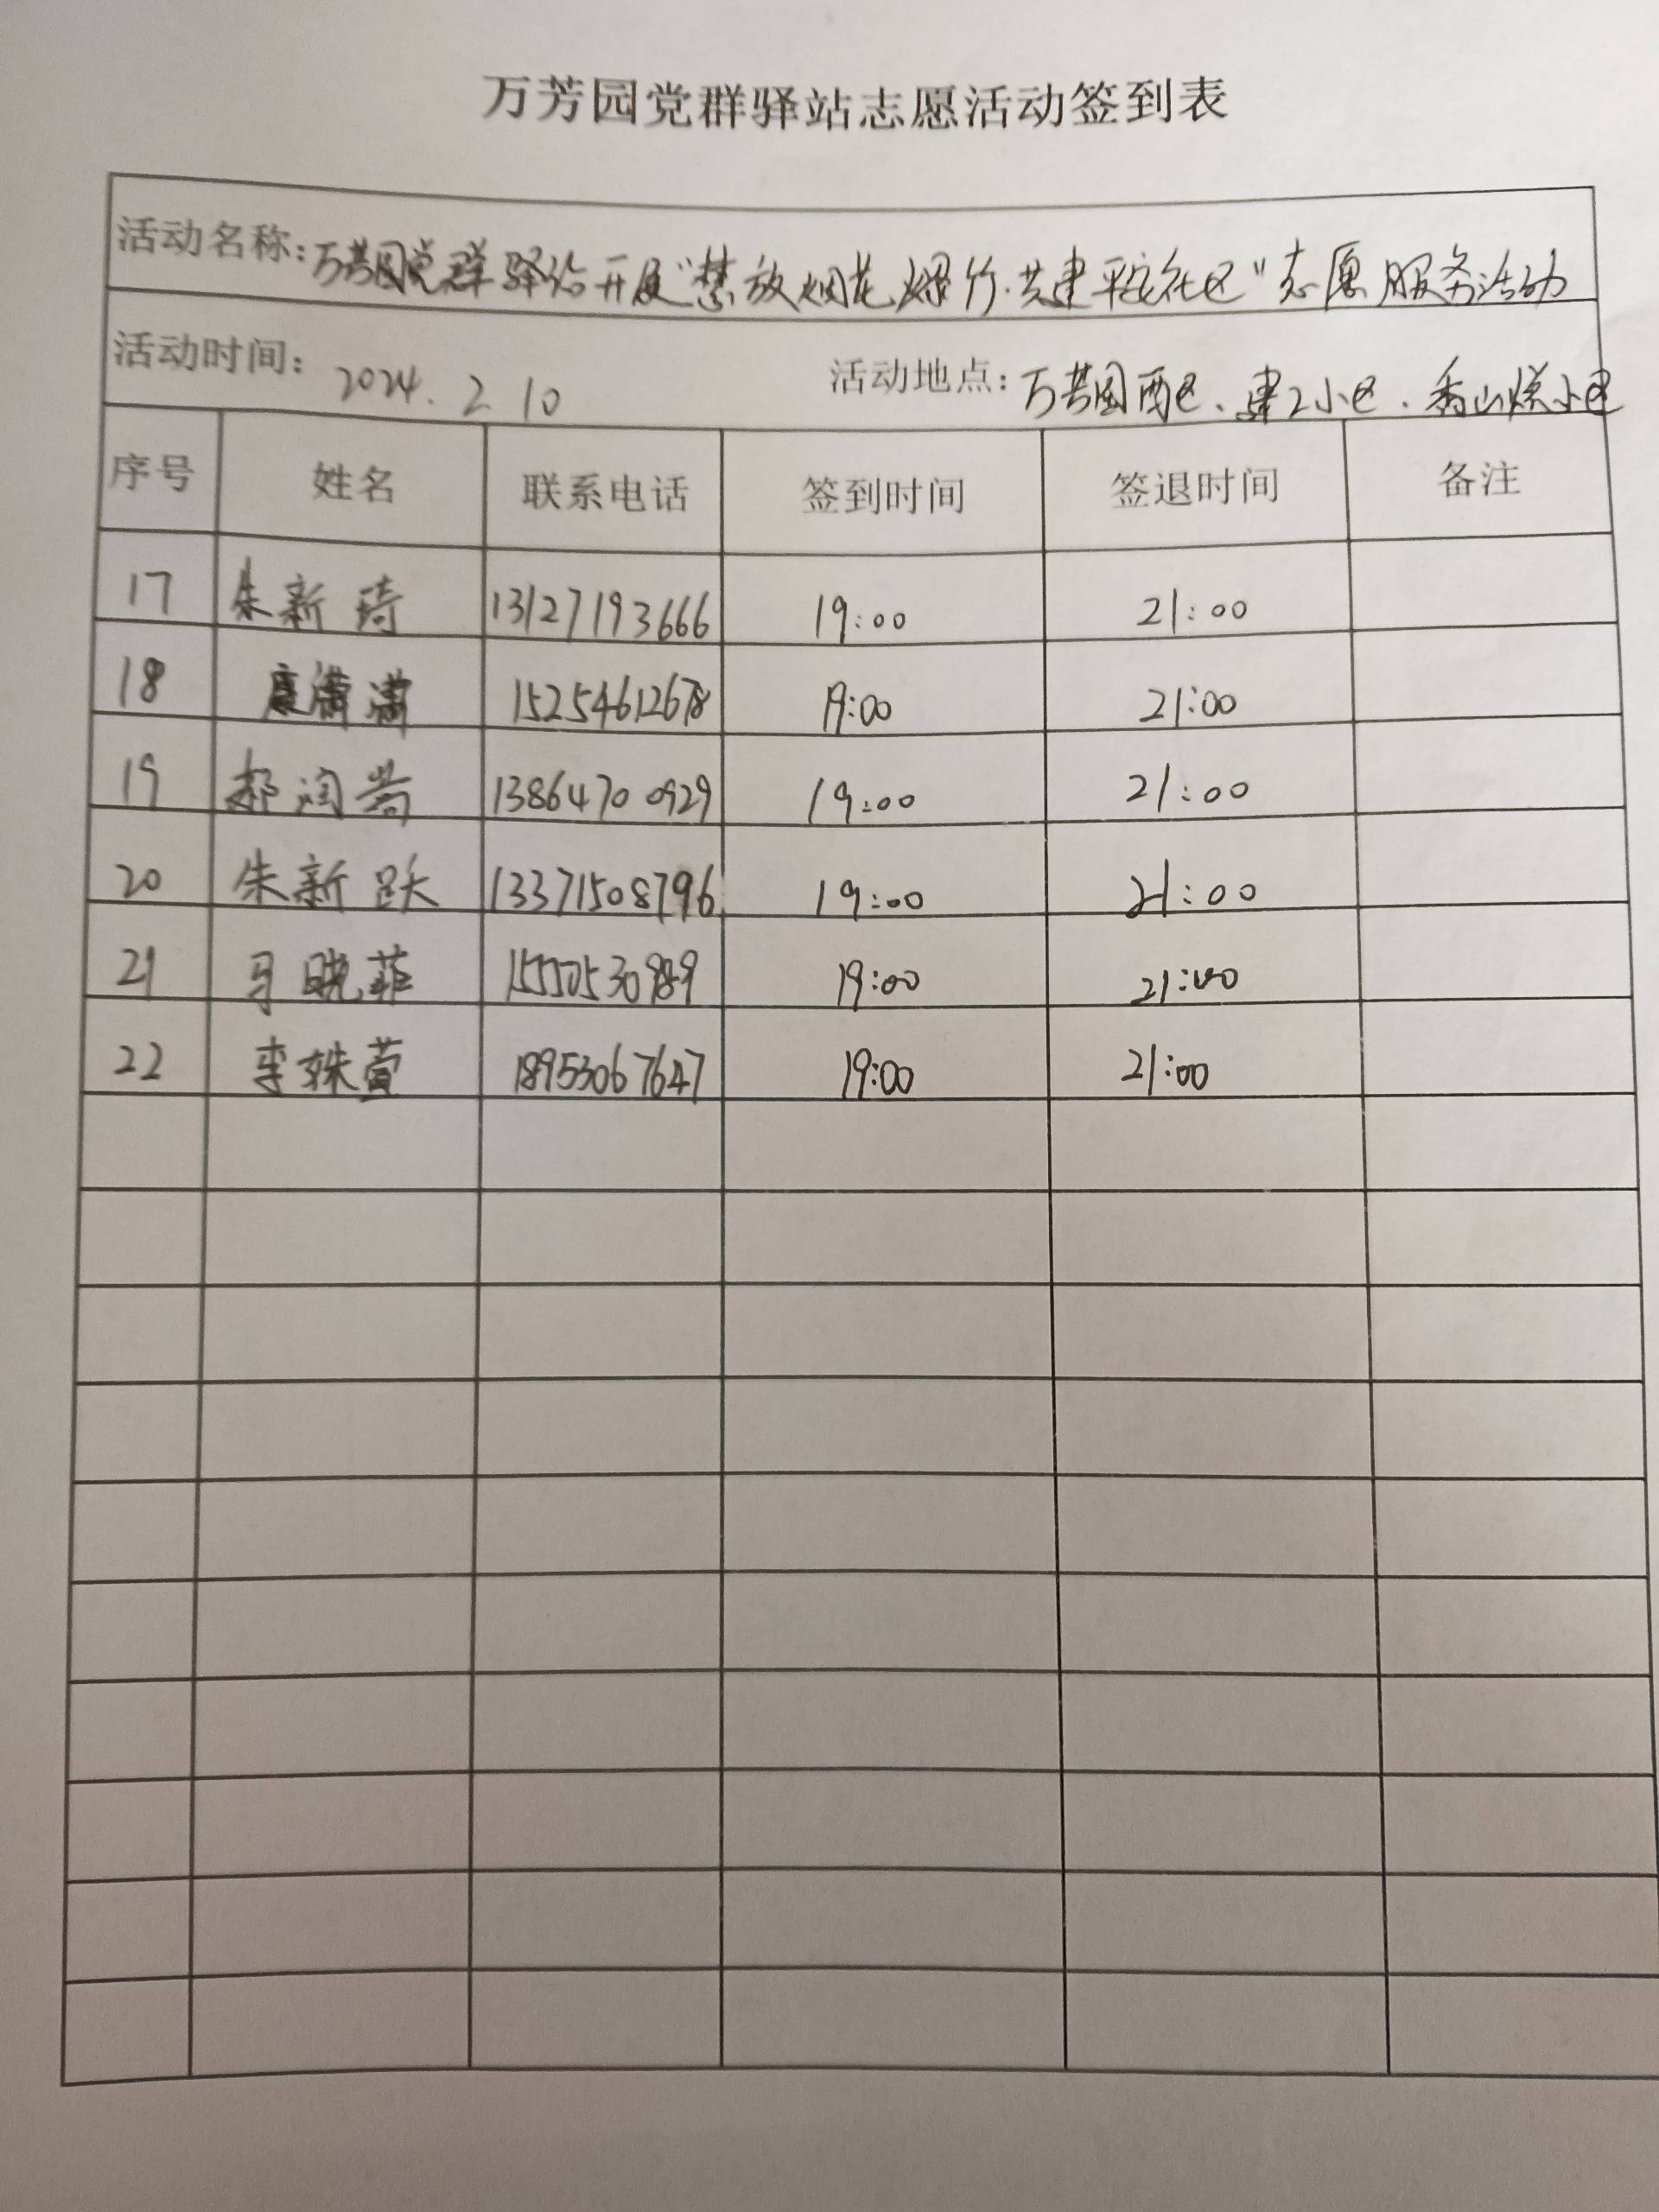 万芳园党群驿站志愿活动签到表
活动名称:万芳园党群驿站开展"禁放烟花爆竹.共建平安社区"志愿服务活动
活动时间: 2024. 2 10 活动地点: 万芳园西区、建工小区.香山悦小区
序号 姓名 联系电话 签到时间 签退时间 备注
17 朱新琦 13127193666 19:00 21:00
18 潇潇 15254612678 19:00 21:00
19 郝 13864700929 19:00 21:00
20 朱新跃 13371508796 19:00 21:00
21 马晓菲 19:00 21:00
22 李姝萱 18953067647 19:00 21:00